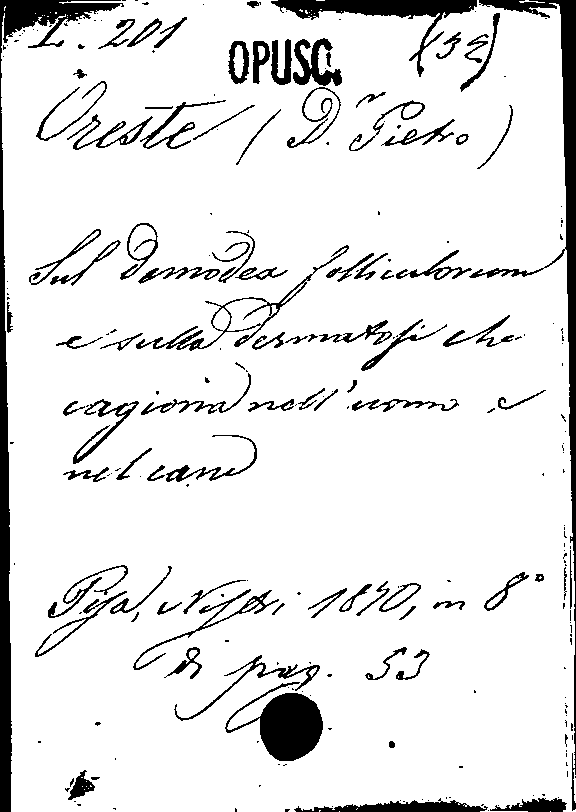 L. 201 OPUSC. (32)
Oreste (D.r Pietro)
Sul demodex folliculorum
e sulla dermatosi che
cagiona nell'uomo e
nel cane
Pisa, Nistri 1870, in 8°
di pag. 53